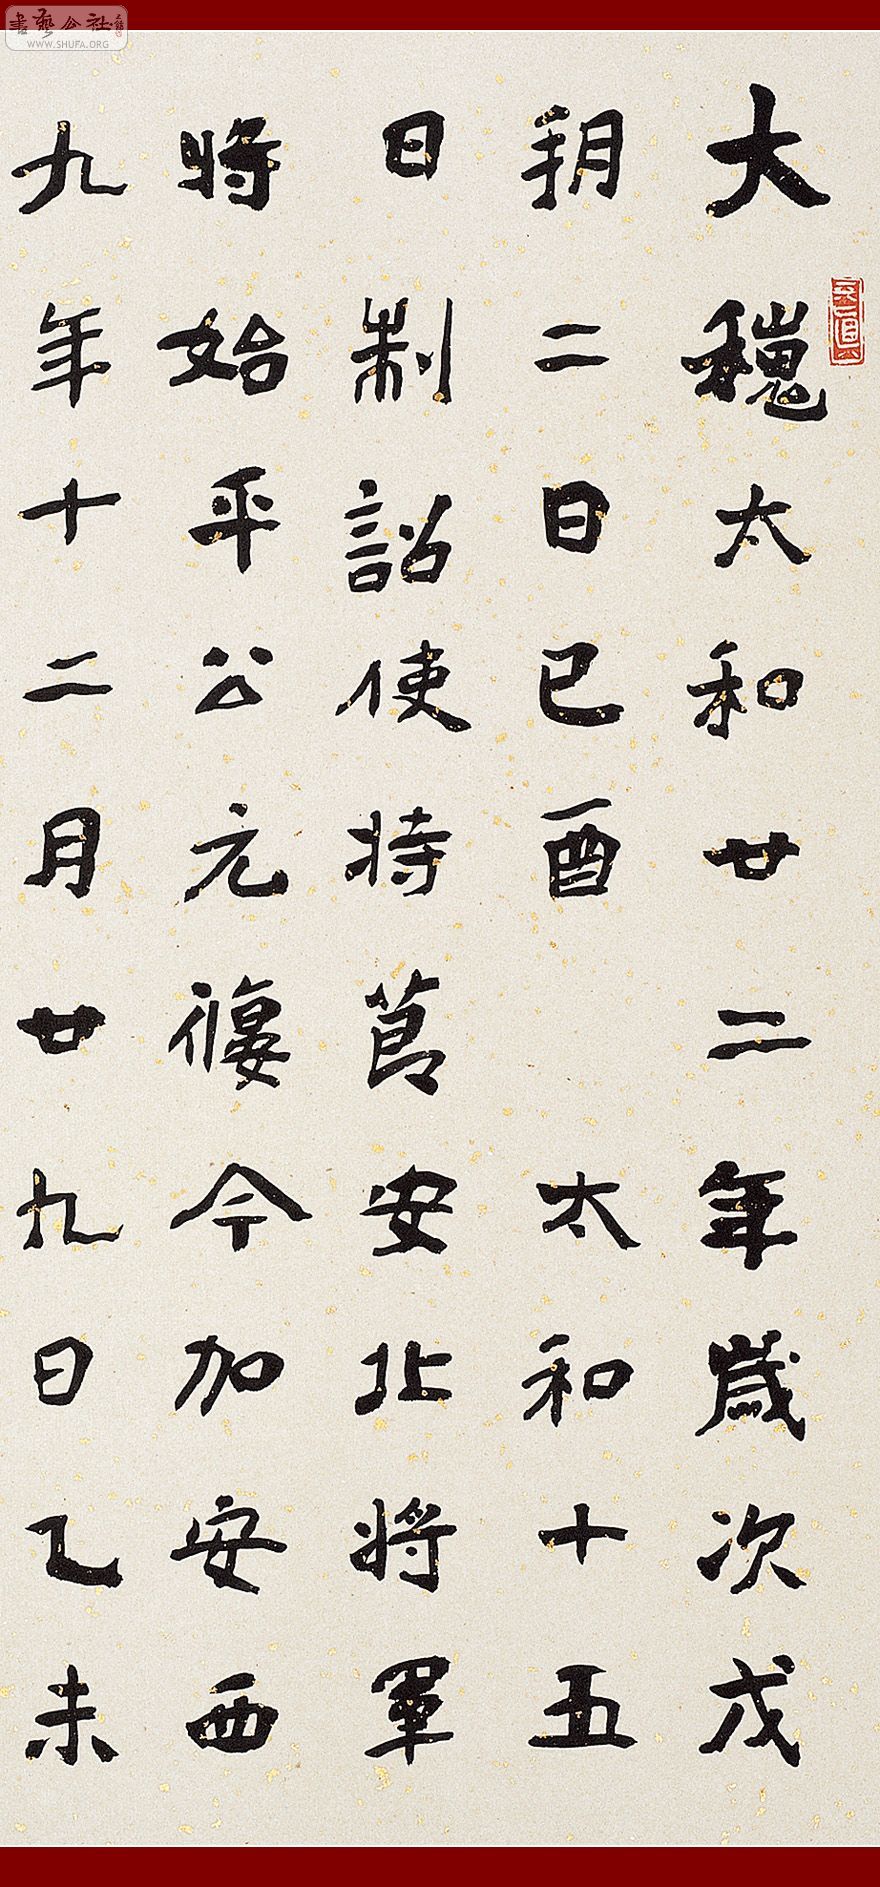 書藝公社
WWW.SHUFA.ORG
大穐太和廿二年歲次戊
朔二日己酉 太和十五
日制詔使持莭安北將軍
將始平公元偃今加安西
九年十二月廿九日乙未